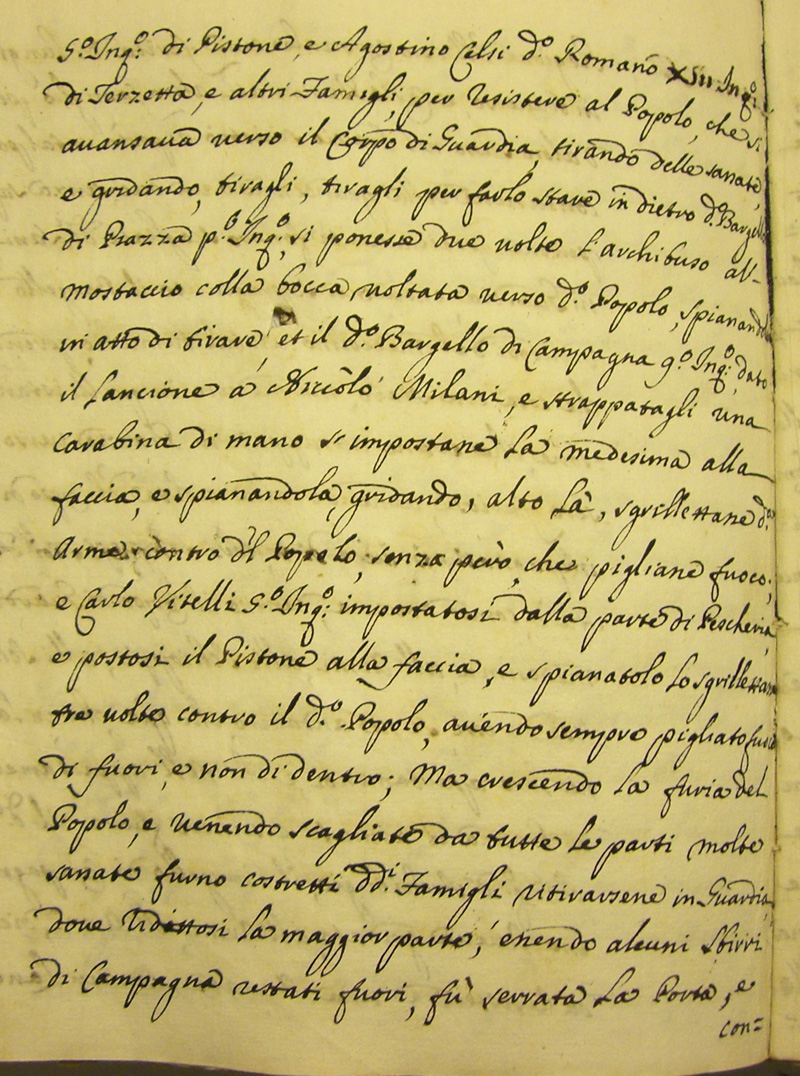 5.º Inq.º di Pistone, e Agostino Celsi d.º Romano XIII Inq.º
di Terzetta, e altri Famigli, per resistere al Popolo, che si
auansaua uerso il Corpo di Guardia, tirando delle sassate,
e gridando, tiragli, tiragli per farlo stare in dietro d.º Bargello
di Piazza p.º Inq.º, si ponesse due uolte l'archibuso all-
mostaccio colla bocca uoltata uerso d.º Popolo, spianandolo
in atto di tirare, et il d.º Bargello di Campagna 9.º Inq.º, dato
il Lancione á Niccolò Milani, e strappatagli una
Carabina di mano s'impostasse la medesima alla
faccia, e spianandola, gridando, alto là, sgrillettasse d.ª
Arme contro d'l Popolo, senza però, che pigliasse fuoco;
e Carlo Vitelli 5.º Inq.º impostatosi dalla parte di Pescheria,
e postosi il Pistone alla faccia, e spianatolo lo sgrillettasse
tre uolte contro il d.º Popolo, auendo sempre pigliato fuoco
di fuori, e non di dentro; Ma crescendo la furia del
Popolo, e uenendo scagliate da tutte le parti molte
sassate furno costretti dd.i Famigli ritirarsene in Guardia,
doue ridottosi la maggior parte, essendo alcuni Sbirri
di Campagna restati fuori, fù serrata la Porta, e
con=